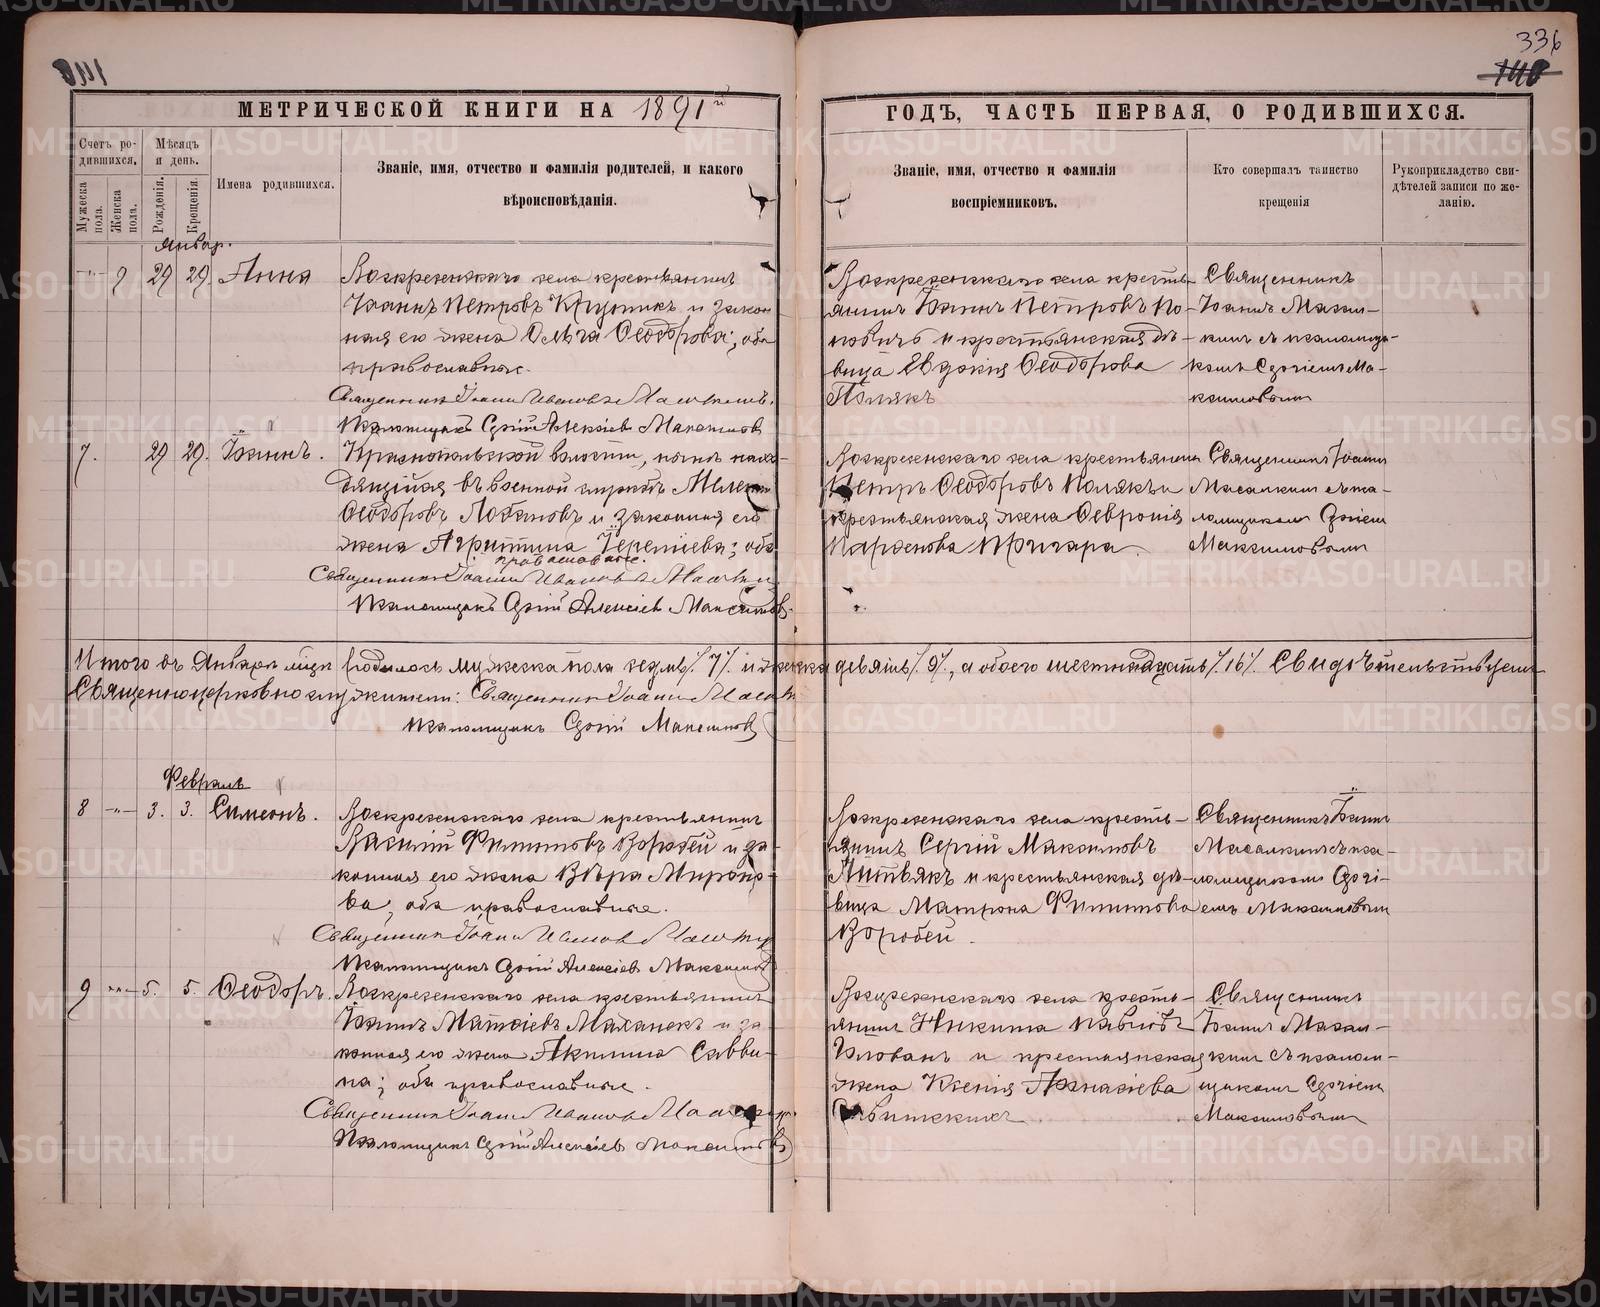 336
140
МЕТРИЧЕСКОЙ КНИГИ НА 1891й
ГОДЪ, ЧАСТЬ ПЕРВАЯ, О РОДИВШИХСЯ.
Счетъ ро-
дившихся.
Мужеска пола.
Женска пола.
Мѣсяцъ
и день.
Рожденія.
Крещенія.
Имена родившихся.
Званіе, имя, отчество и фамилія родителей, и какого
вѣроисповѣданія.
Званіе, имя, отчество и фамилія
воспріемниковъ.
Кто совершалъ таинство
крещенія
Рукоприкладство сви-
дѣтелей записи по же-
ланію.
Январ.
9 29 29 Анна
Воскресенскаго села крестьянинъ
Іоаннъ Петровъ и закон
ная его жена Ольга Ѳеодорова; оба
православные.
Священникъ Іоаннъ Ивановъ
Псаломщикъ Сергій Алексіевъ Максимовъ
Воскресенскаго села кресть-
янинъ Іоаннъ Петровъ По-
повичъ и крестьянская дѣ-
вица Евдокія Ѳеодорова
Полякъ
Священникъ
Іоаннъ Масал-
кинъ съ псаломщи-
комъ Сергіемъ Ма-
ксимовымъ
7. 29 29. Іоаннъ.
Краснопольской волости, нынѣ нахо-
дящійся въ военной службѣ
Ѳеодоровъ Лобановъ и законная его
жена Агриппина Терентіева; оба
православные.
Священникъ Іоаннъ Ивановъ
Псаломщикъ Сергій Алексіевъ Максимовъ
Воскресенскаго села крестьянинъ
Петръ Ѳеодоровъ Полякъ и
крестьянская жена Ѳевронія
Парѳенова
Священникъ Іоаннъ
Масалкинъ съ пса-
ломщикомъ Сергіемъ
Максимовымъ
Итого въ Январѣ мѣсяцѣ родилось мужеска пола семь /.7/. и женска девять /.9/., а обоего шестнадцать /.16/. Свидѣтельствуемъ
Священноцерковнослужители: Священникъ Іоаннъ
Псаломщикъ Сергій Максимовъ
Февраль
8 3. 3. Симеонъ.
Воскресенскаго села крестьянинъ
Василій Филипповъ Воробей и за-
конная его жена Вѣра Мироно-
ва, оба православные.
Священникъ Іоаннъ Ивановъ
Псаломщикъ Сергій Алексіевъ Максимовъ
Воскресенскаго села кресть-
янинъ Сергій Максимовъ
Литвякъ и крестьянская дѣ-
вица Матрона Филиппова
Воробей.
Священникъ Іоаннъ
Масалкинъ съ пса-
ломщикомъ Сергі-
емъ Максимовымъ
9 5. 5. Ѳеодоръ.
Воскресенскаго села крестьянинъ
Іоаннъ Матѳіевъ и за-
конная его жена Акилина Савви-
на; оба православные.
Священникъ Іоаннъ Ивановъ
Псаломщикъ Сергій Алексіевъ Максимовъ
Воскресенскаго села кресть-
янинъ Никита Павловъ
и крестьянская
жена Ксенія Аѳанасіева
Священникъ
Іоаннъ Масал-
кинъ съ псалом-
щикомъ Сергіемъ
Максимовымъ
METRIKI.GASO-URAL.RU